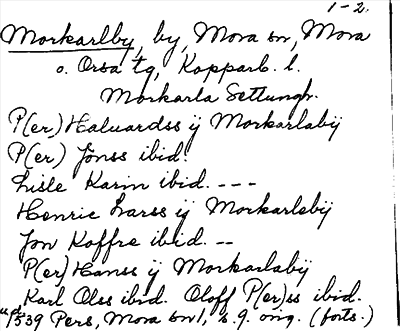 1-2.
Morkarlby, by, Mora sn, Mora
o. Orsa tg, Kopparb. l.
Morkarla Settungh.
P(er) Haluardss ij Morkarlabij
P(er) Jonss ibid.
Lisle Karin ibid. ---
Henric Larss ij Morkarlebij
Jon Koffre ibid. --
P(er) Hanss ij Morkarlabij
Karl Olss ibid. Oloff P(er)ss ibid.
1539 Pers, Mora sn 1, s. 9. orig. (forts.)